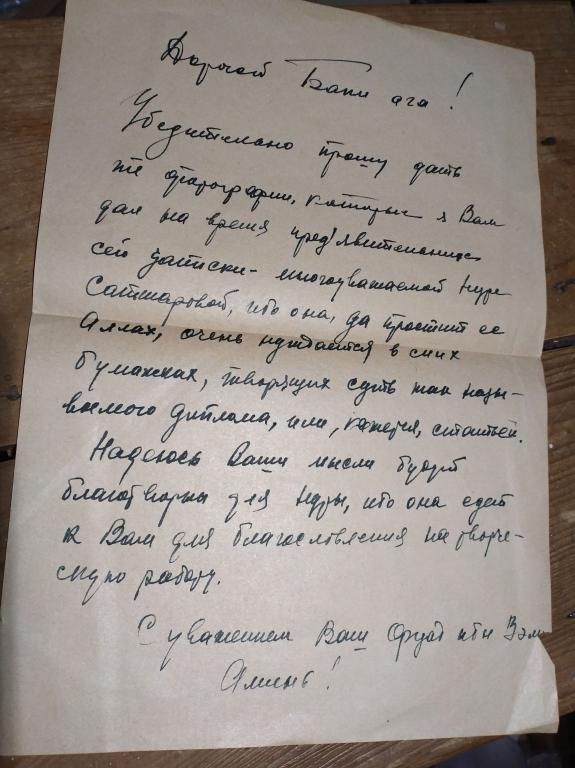 Дорогой Баки ага!
Убедительно прошу дать
те фотографии, которые я Вам
дал на время предъявительнице
сей записки - многоуважаемой Нуре
Саттаровой, ибо она, да простит ее
Аллах, очень нуждается в сих
бумажках, творящих суть так назы-
ваемого диплома, или, кажется, статьи.
Надеюсь Ваши мысли будут
благотворны для Нуры, ибо она едет
к Вам для благословления на творче-
скую работу.
С уважением Ваш Фуат
Аминь!